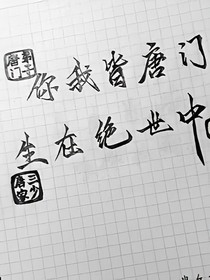 弟子
唐门
你我皆唐门
生在绝世中
三少
唐家